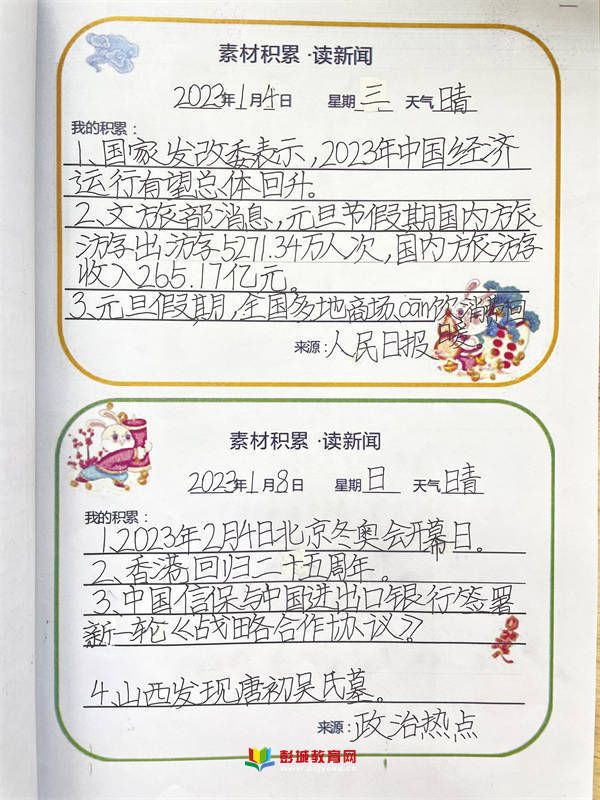 素材积累·读新闻
2023年1月4日 星期三 天气晴
我的积累：
1、国家发改委表示，2023年中国经济
运行有望总体回升。
2、文旅部消息，元旦节假期国内旅
游孛出游孛5271.34万人次，国内旅游孛
收入265.17亿元。
3、元旦假期，全国多地商场、cān饮消费回
暖。
来源：人民日报
素材积累·读新闻
2023年1月8日 星期日 天气晴
我的积累：
1、2023年2月4日北京冬奥会开幕日。
2、香港回归二十五周年。
3、中国信保与中国进出口银行签署
新一轮《战略合作协议》。
4、山西发现唐初吴氏墓。
来源：政治热点
彭城教育网